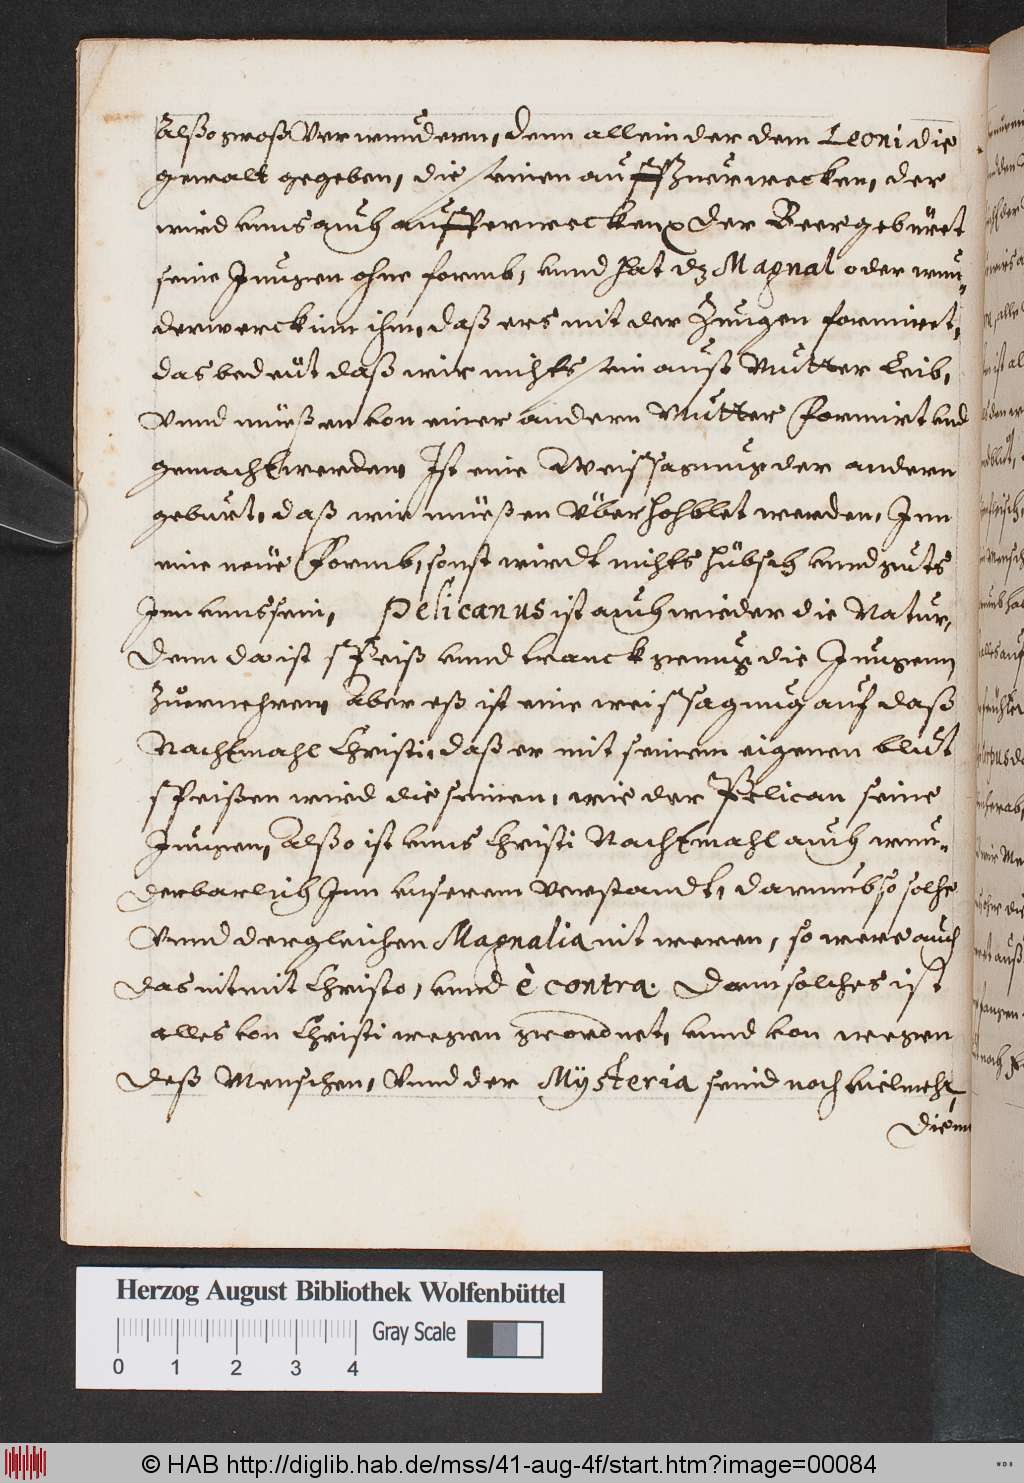 Alßo groß Verwundern, denn allein der dem Leoni die
gewalt gegeben, die seinen auffZuerwecken, der
wird vnns auch aufferwecken, der Beer gebüret
seine Jungen ohne formb, vnnd hat dz Magnal oder wun-
derwerck inn ihm, daß ers mit der Zungen formiret,
das bedeut daß wir nichts sein aust Mutter Leib,
Vnnd müeßen von einer andern Mutter formirt vnd
gemacht werden, Ist eine Weissagung der andern
geburt, daß wir müeßen Überhohblet werden, Inn
eine neüe formb, sonst wirdt nichts hübsch vnnd guts
Inn vnns sein, Pelicanus ist auch wieder die Natur,
Denn da ist speiß vnnd tranck genug die Jungenn
Zuernehren, Aber eß ist eine weissagung auf daß
Nachtmahl Christi, daß er mit seinem eigenen blut
speißen wird die seinen, wie der Pelican seine
Jungen, Alßo ist vnns Christi Nachtmahl auch wun-
derbarlich Inn vnserem verstandt, darumb so solche
Vnnd dergleichen Magnalia nit weren, so were auch
das nit mit Christo, vnnd è contra. Dann solches ist
alles von Christi wegen geordnet, vnnd von wegen
deß Menschen, Vnnd der Mÿsteria seind noch vielmehr,
Die
Herzog August Bibliothek Wolfenbüttel
Gray Scale
0 1 2 3 4
© HAB http://diglib.hab.de/mss/41-aug-4f/start.htm?image=00084